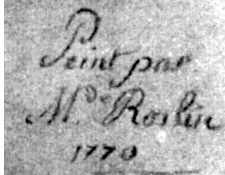 Peint par
M.de Roslin
1770